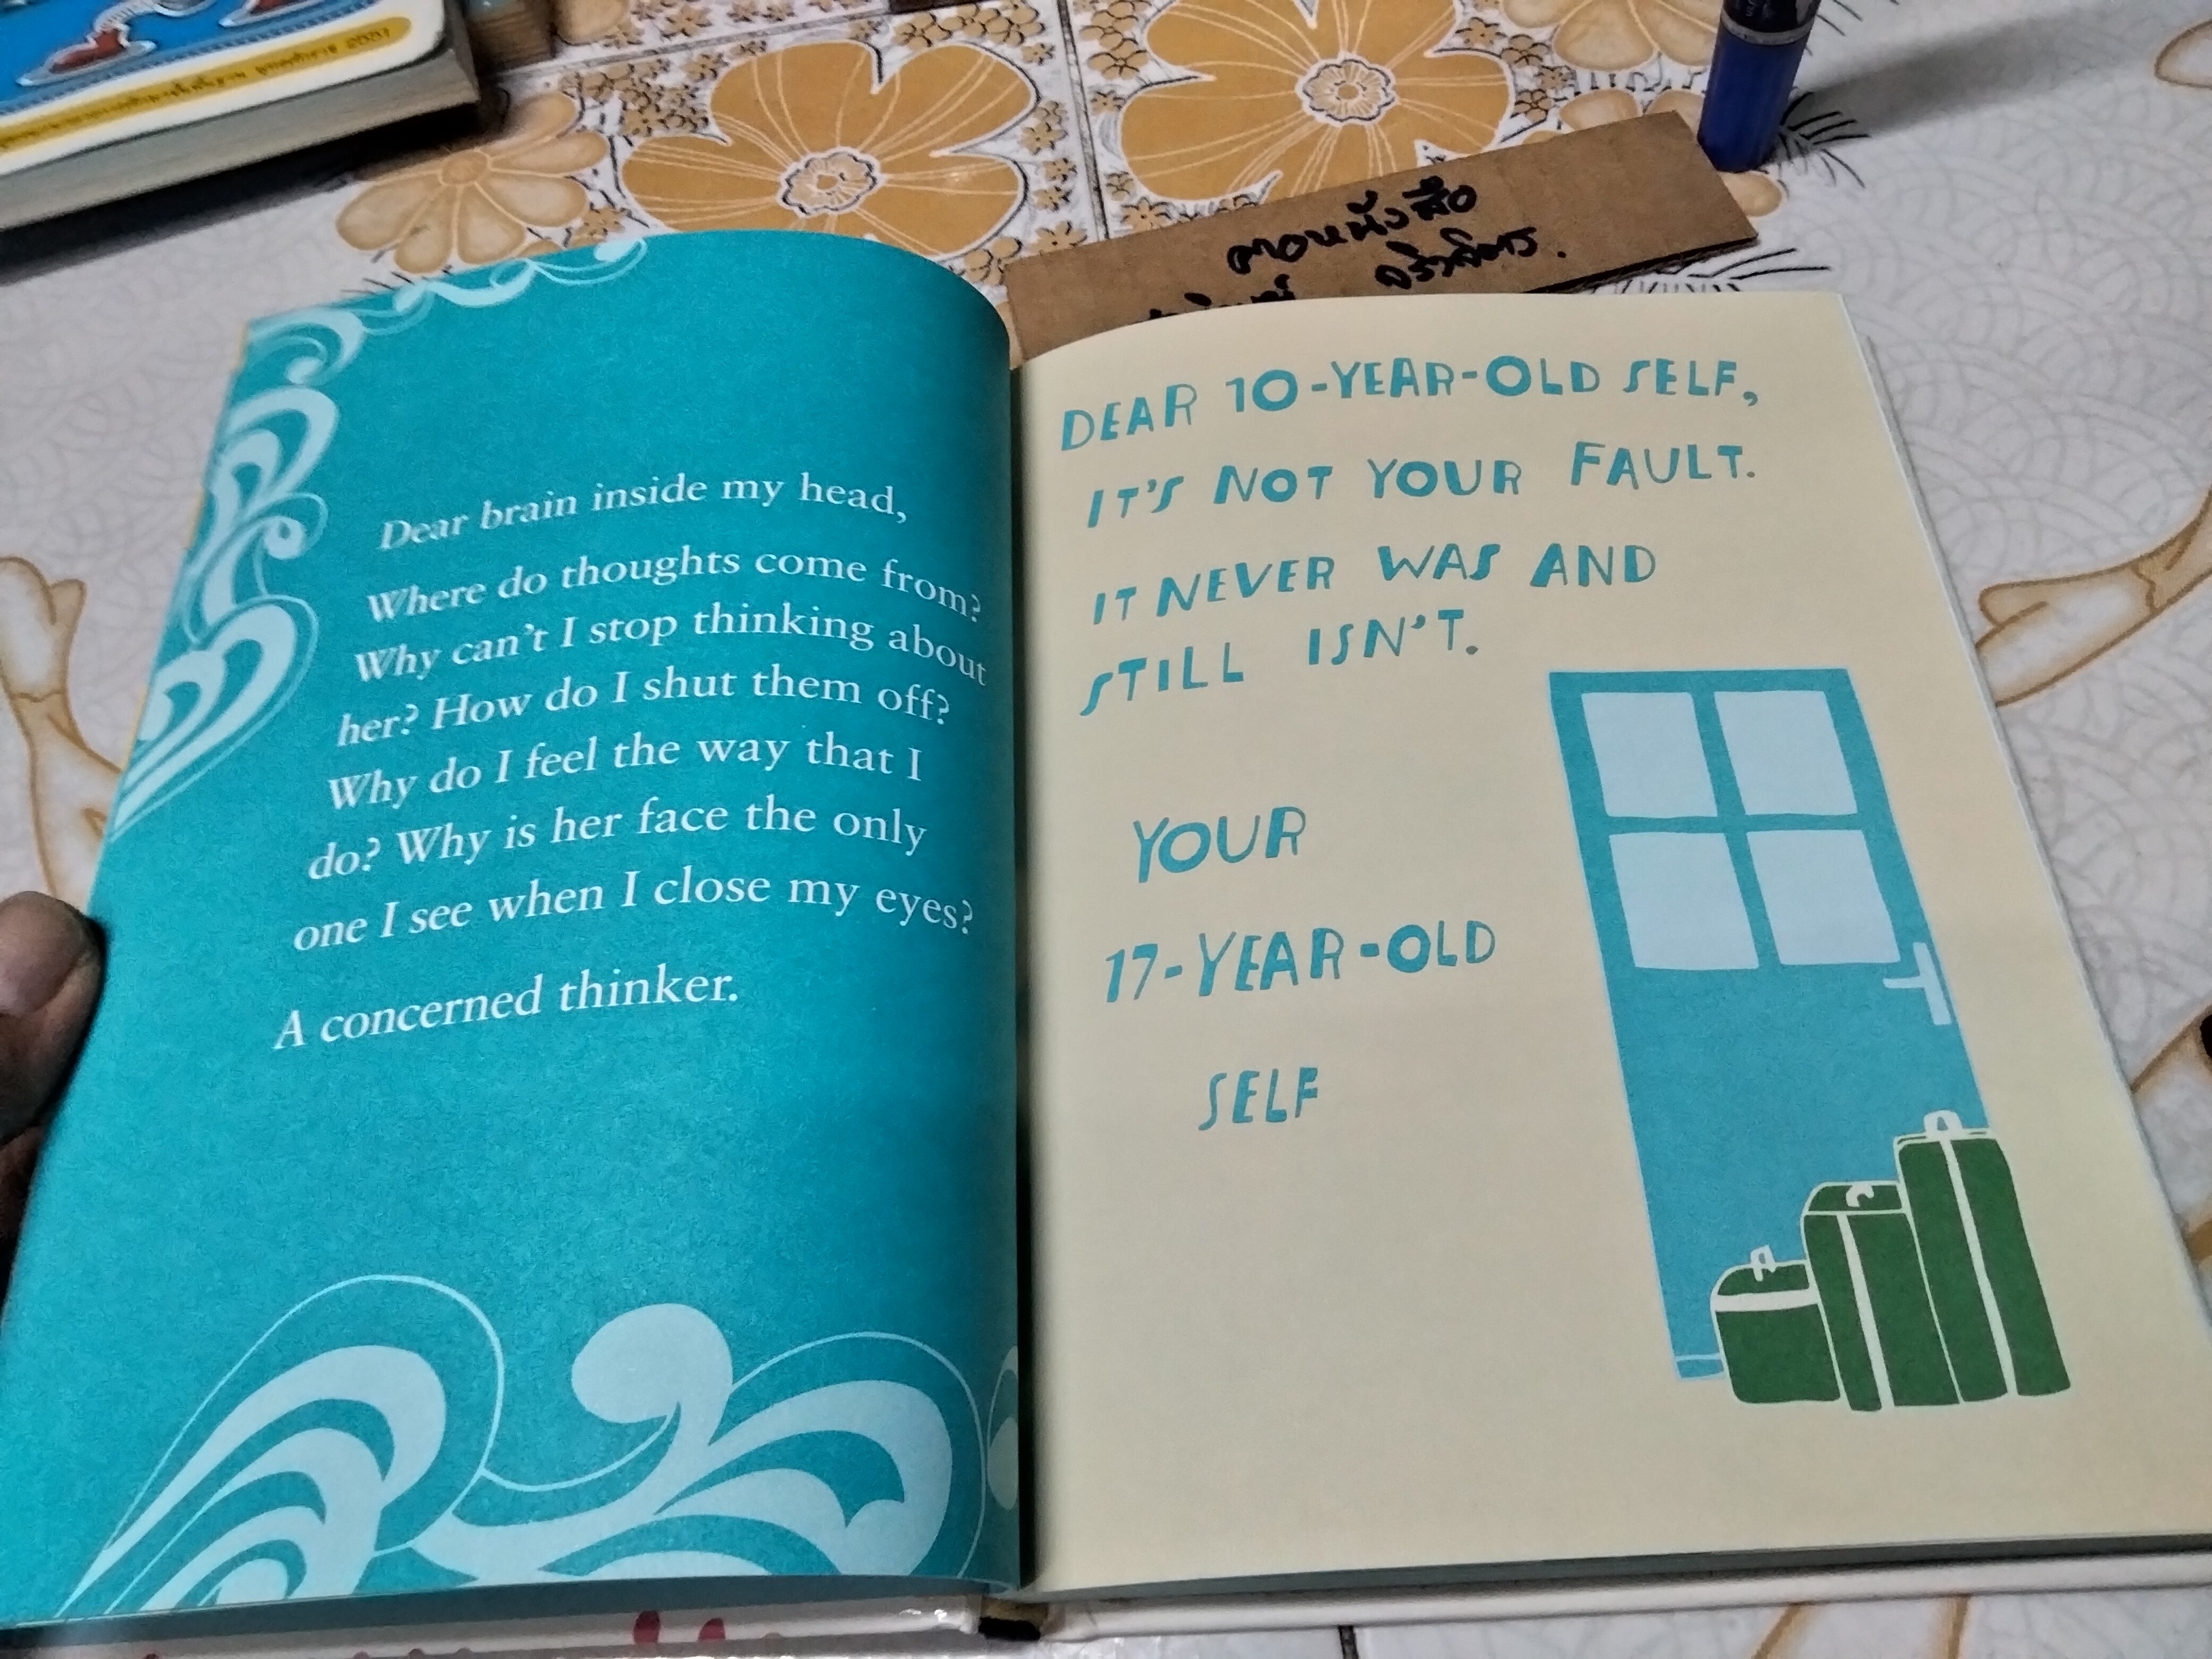 Dear brain inside my head,
Where do thoughts come from?
Why can't I stop thinking about
her? How do I shut them off?
Why do I feel the way that I
do? Why is her face the only
one I see when I close my eyes?
A concerned thinker.
DEAR 10-YEAR-OLD SELF,
IT'S NOT YOUR FAULT.
IT NEVER WAS AND
STILL ISN'T.
YOUR
17-YEAR-OLD
SELF